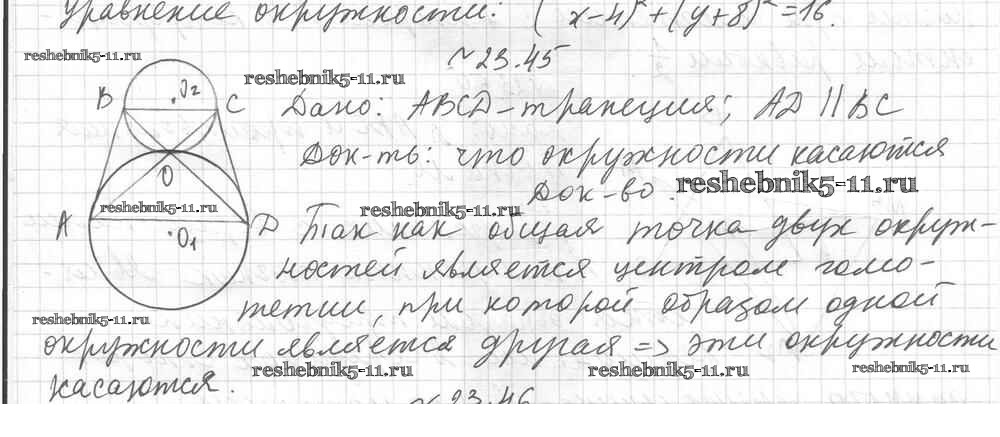 Уравнение окружности: (x-4)² + (y+8)² = 16.
№ 23.45
reshebnik5-11.ru
reshebnik5-11.ru
B O₂ C
Дано: ABCD – трапеция; AD || BC
Док-ть: что окружности касаются
O
Док-во:
reshebnik5-11.ru
reshebnik5-11.ru
reshebnik5-11.ru
A D
O₁
Так как общая точка двух окруж-
ностей является центром гомо-
тетии, при которой образом одной
reshebnik5-11.ru
окружности является другая => эти окружности
касаются.
reshebnik5-11.ru
reshebnik5-11.ru
reshebnik5-11.ru
№ 23.46